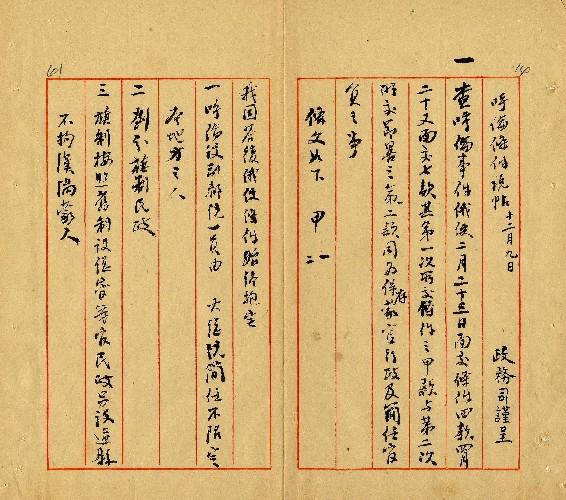 呼倫條件說帖 十二月九日
政務司謹呈
一 查呼倫事件俄使二月二十三日面交條件四款四月
二十又面交七款其第一次所交條件之甲款與第二次
所交節畧之第二款同為保存蒙官行政及簡任官
員之事
條文如下 甲一
二
我國答復俄使條件始終規定
一 呼倫設副都統一員由大總統簡任不限定
本地方之人
二 劃分旗制民政
三 旗制按照舊制設總管等官民政另設道縣
不拘漢滿蒙人
140